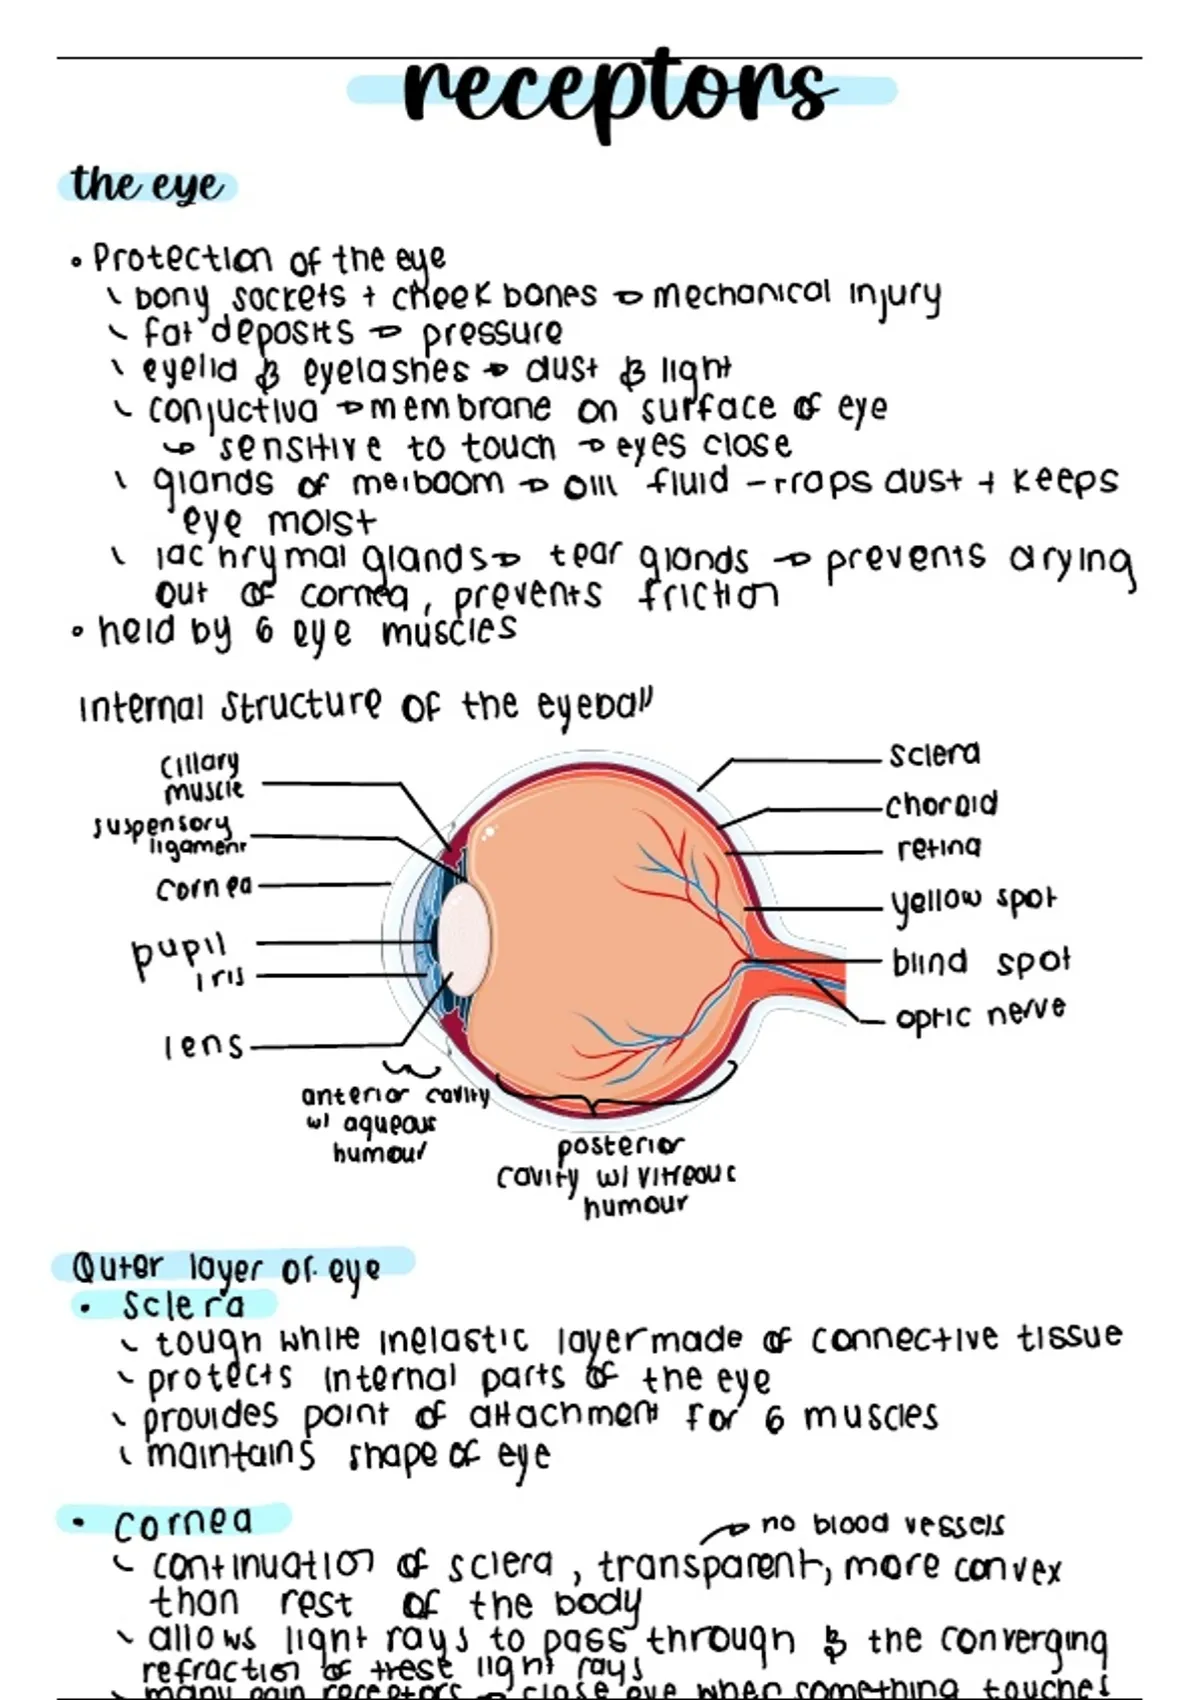 receptors
the eye
• Protection of the eye
\ bony sockets + cheek bones → mechanical injury
\ fat deposits → pressure
\ eyelid & eyelashes → dust & light
\ conjuctiva → membrane on surface of eye
↳ sensitive to touch → eyes close
\ glands of meiboom → oill fluid - traps dust + keeps
eye moist
\ lachrymal glands → tear glands → prevents drying
out of cornea, prevents friction
• held by 6 eye muscles
Internal structure of the eyeball
cillary
muscle
suspensory
ligament
cornea
pupil
iris
lens
anterior cavity
w/ aqueous
humour
posterior
cavity w/ vitreous
humour
sclera
choroid
retina
yellow spot
blind spot
optic nerve
Outer layer of eye
• Sclera
\ tough white inelastic layer made of connective tissue
\ protects internal parts of the eye
\ provides point of attachment for 6 muscles
\ maintains shape of eye
• cornea
→ no blood vessels
\ continuation of sclera, transparent, more convex
than rest of the body
\ allows light rays to pass through & the converging
refraction of these light rays
\ many pain receptors → close eye when something touches